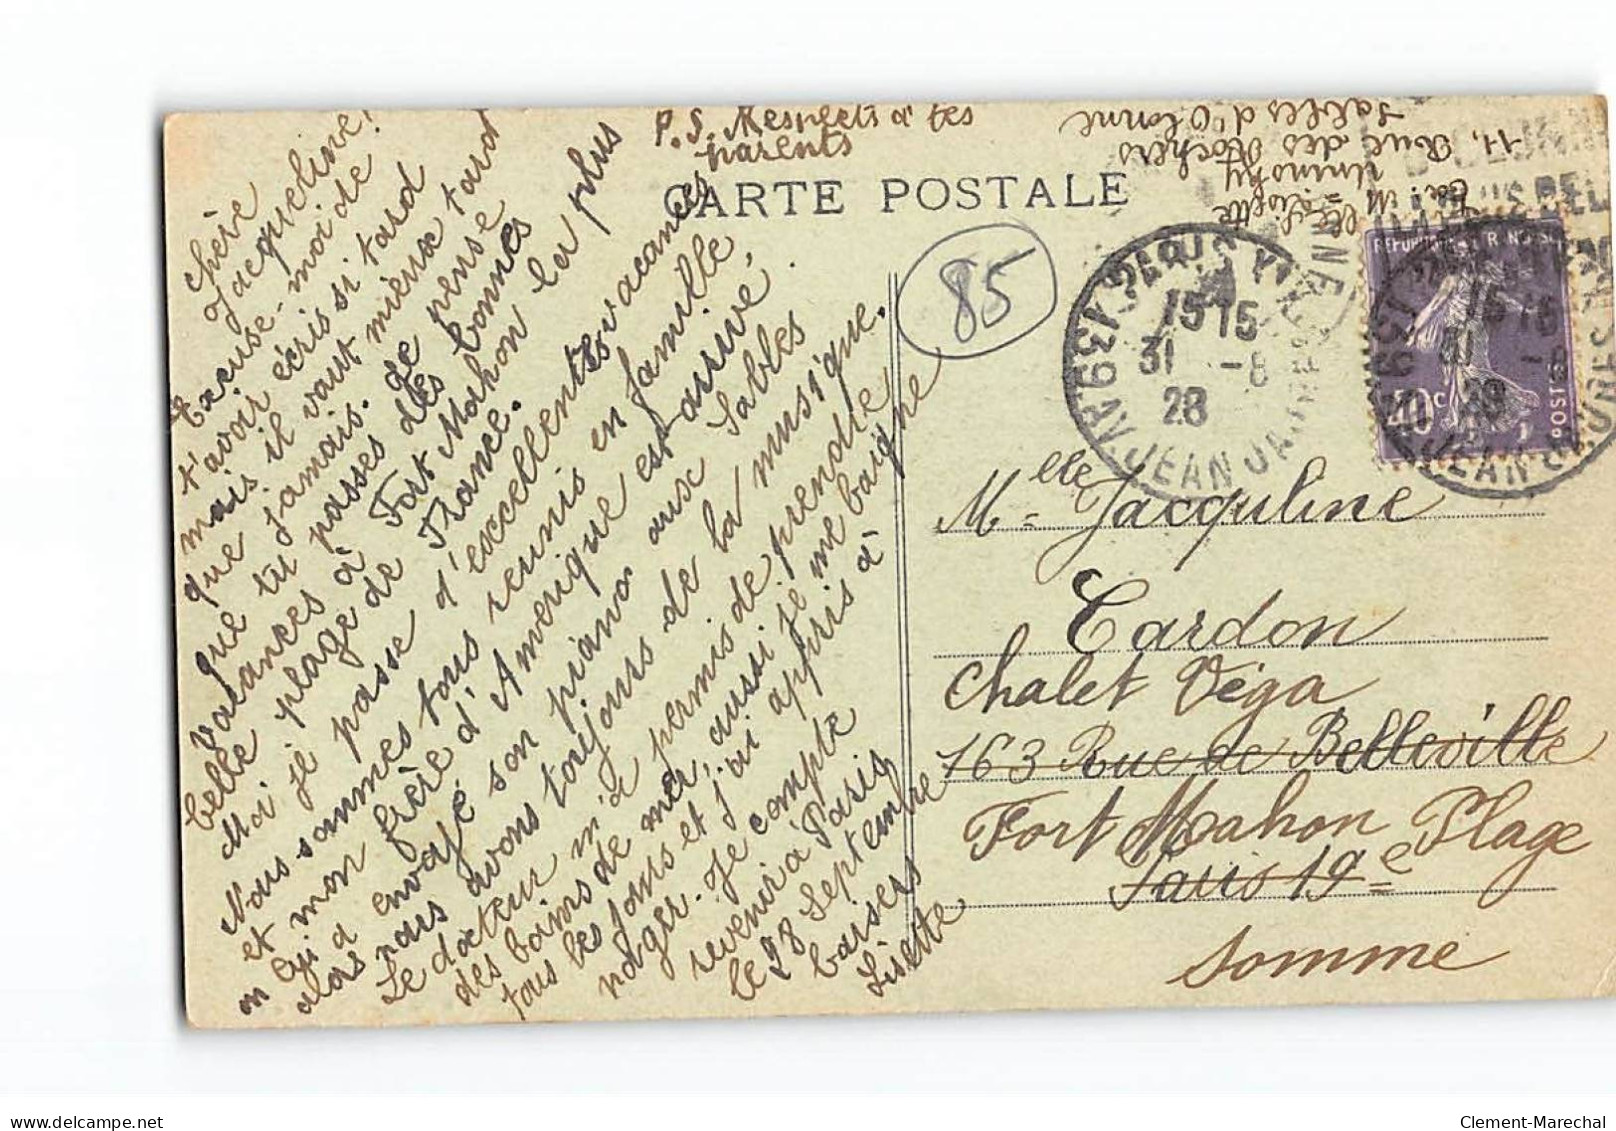 Chère
Jacqueline!
Excuse-moi de
t'avoir écris si tard
mais il vaut mieux tard
que jamais. Je pense
que tu passes des bonnes
vacances à Fort Mahon la plus
belle plage de France.
Moi je passe d'excellentes vacances
Nous sommes tous reunis en famille,
et mon frère d'Amerique est arrivé.
on a envoyé son piano aux Sables
alors nous avons toujours de la musique.
Le docteur m'a permis de prendre
des bains de mer, aussi je me baigne
tous les jours et j'ai appris à
nager. Je compte
revenir à Paris
le 28 Septembre
baisers
Lisette
P.S. Respects à tes
parents
CARTE POSTALE
85
Lisette
11, Rue des Rochers
Sables d'Olonne
PARIS XVI
15 15
31 -8
28
AV. JEAN JAURES
POSTES
40c
Mlle Jacquline
Cardon
Chalet Véga
163 Rue de Belleville
Fort Mahon Plage
Paris 19e
Somme
delcampe.net
Clement-Marechal